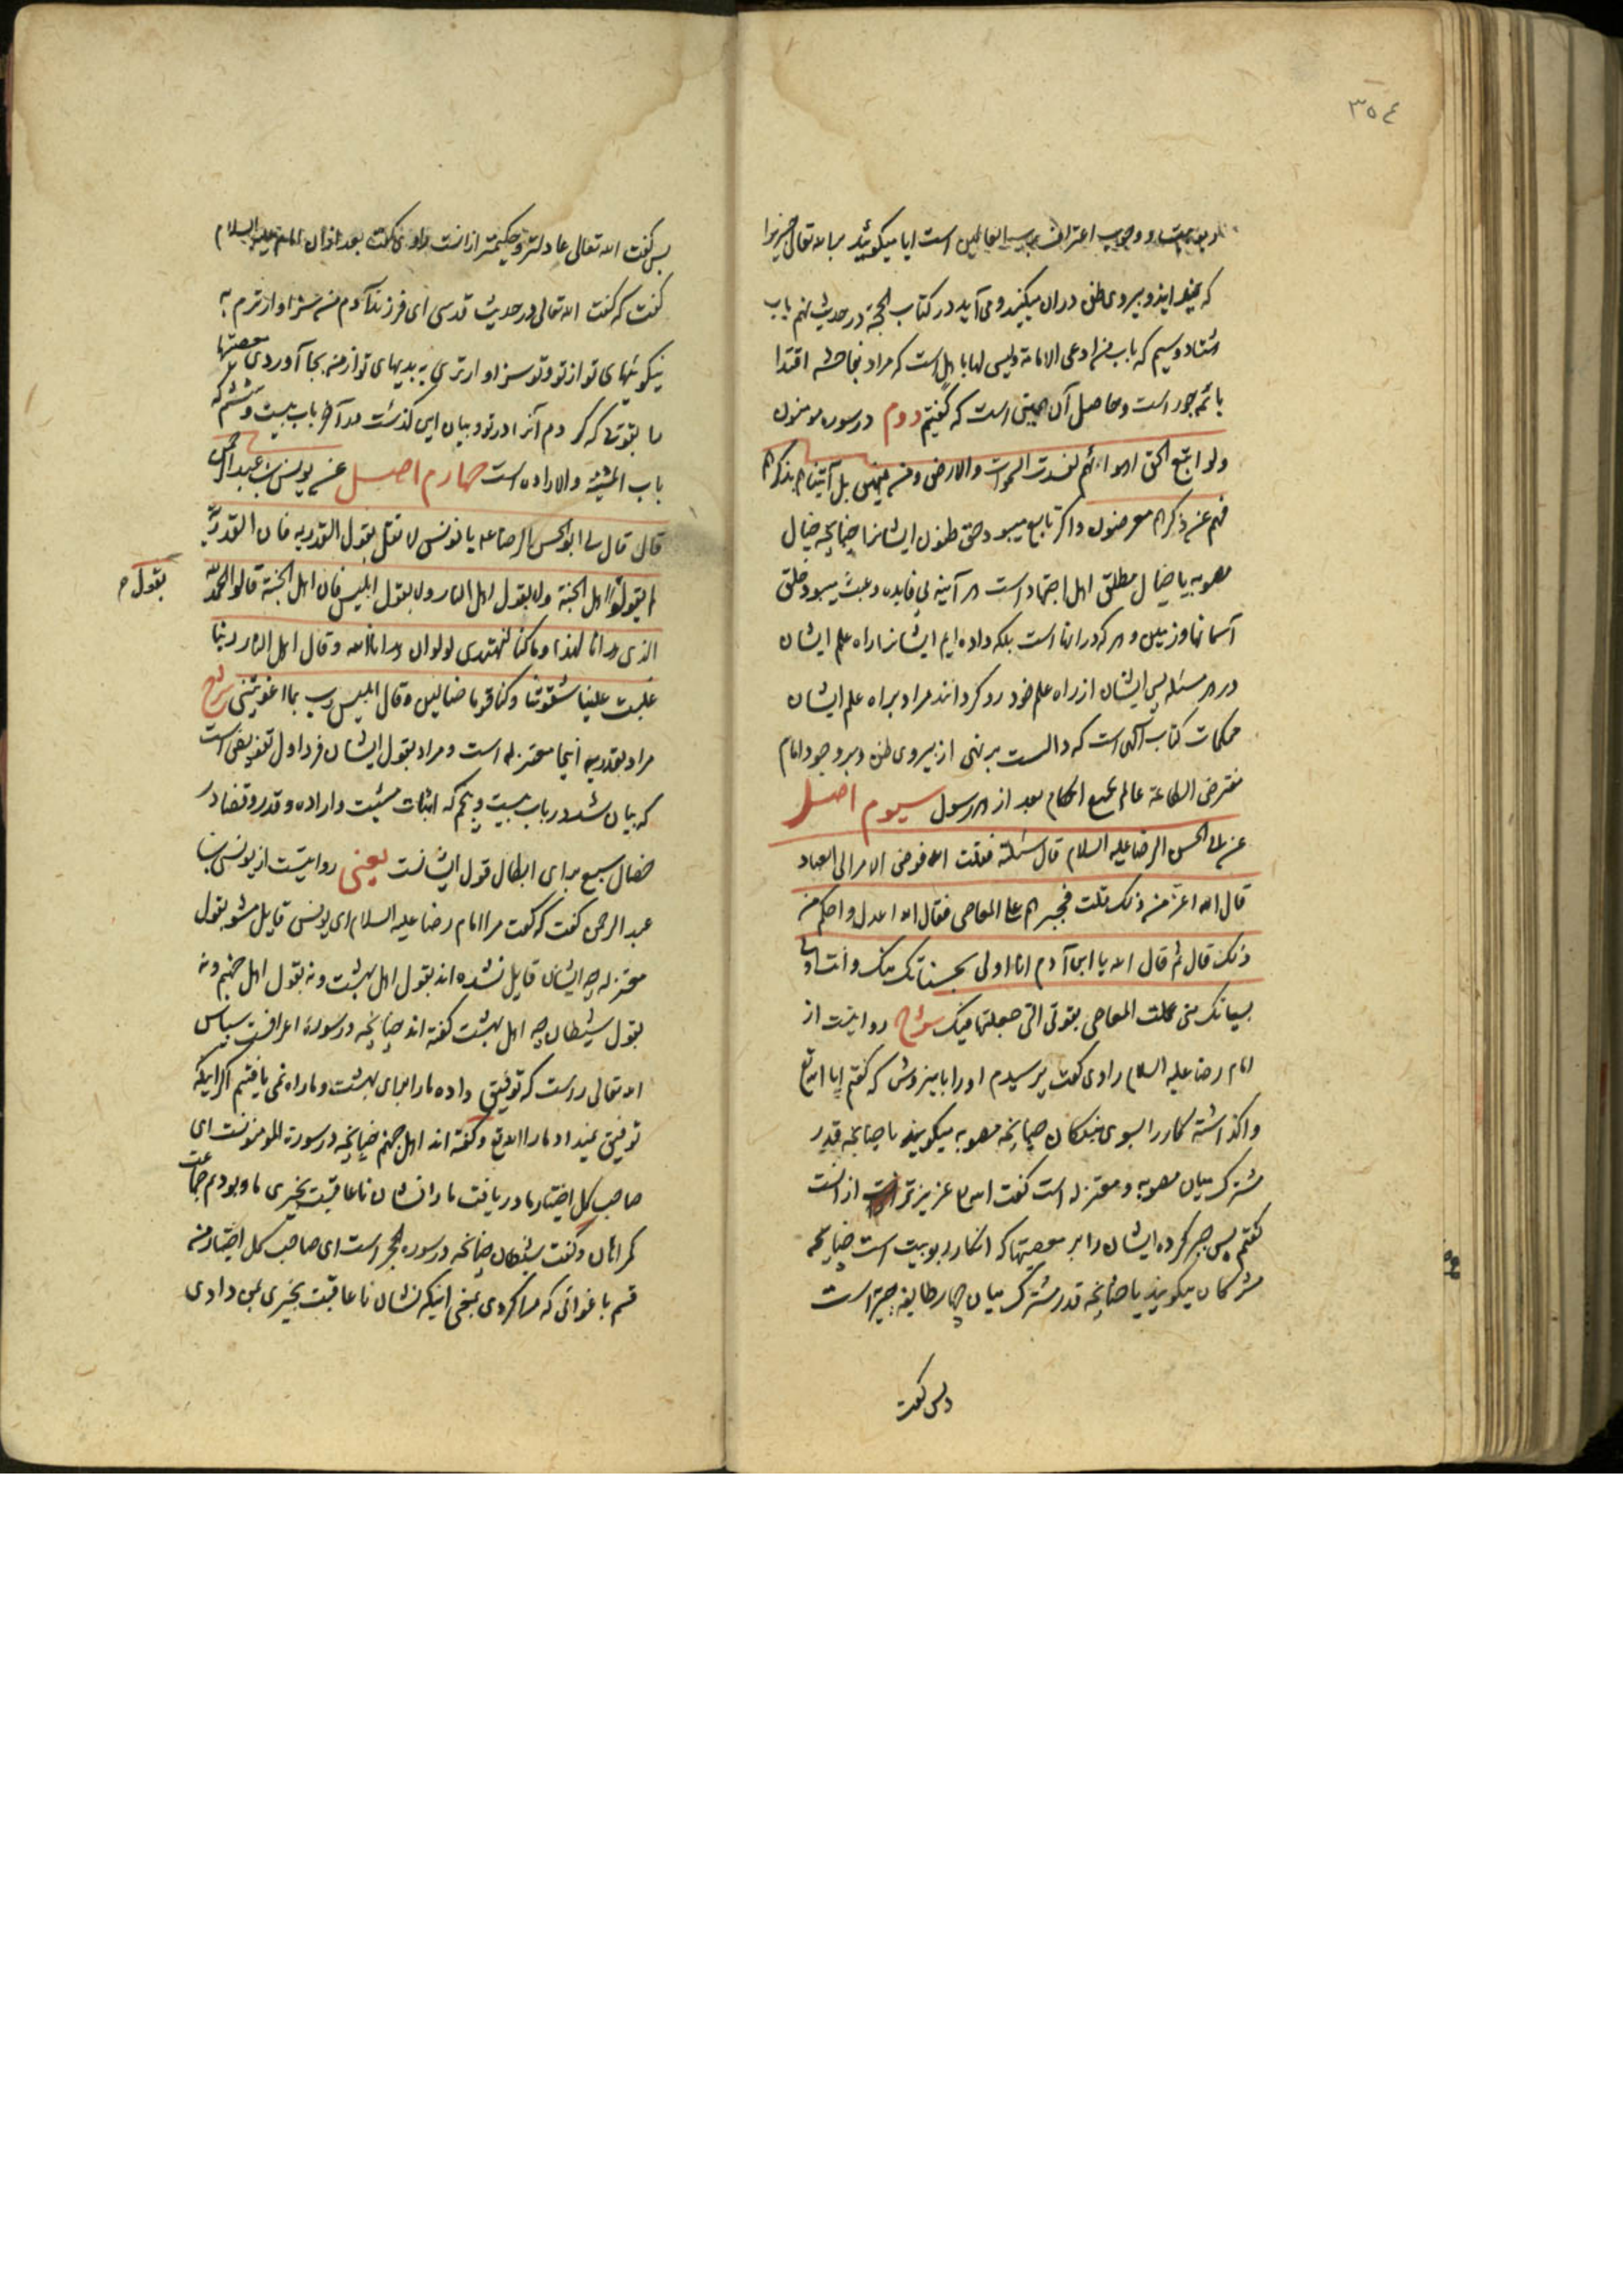 ٣٥٤
و وجوب اعتراف برب العالمین است ایا میگوئید بر الله تعالی چیزیرا
که نمیدانید و پیروی ظن در آن میکنید و می آید در کتاب الحجة در حدیث نهم باب
هشتاد و سیم که باب من ادعی الامامة ولیس لها باهل است که مراد بفاحشه اقتدا
بائمه جور است و حاصل آن همین است که گفتیم دوم در سوره مومنون
ولو اتبع الحق اهواءهم لفسدت السموات والارض ومن فیهن بل آتیناهم بذکرهم
فهم عن ذکرهم معرضون و اگر تابع میبود حق ظنون ایشانرا چنانچه خیال
مصوبه یا خیال مطلق اهل اجتهاد است هر آینه بی فایده و عبث میبود خلق
آسمانها و زمین و هر که در آنها است بلکه داده ایم ایشانرا راه علم ایشان
در هر مسئله پس ایشان از راه علم خود رو گردانند مراد براه علم ایشان
محکمات کتاب الهی است که دالست بر نهی از پیروی ظن و بر وجود امام
مفترض الطاعة عالم بجمیع احکام بعد از هر رسول سیوم اصل
عن ابی الحسن الرضا علیه السلام قال سئلته فقلت الله فوض الامر الی العباد
قال الله اعز من ذلک قلت فجبرهم علی المعاصی فقال الله اعدل واحکم من
ذلک قال ثم قال الله یا ابن آدم انا اولی بحسناتک منک وانت اولی
بسیئاتک منی عملت المعاصی بقوتی التی جعلتها فیک شرح روایتست از
امام رضا علیه السلام راوی گفت پرسیدم او را باین روش که گفتم ایا الله تع
واگذاشته کار را بسوی بندگان چنانچه مصوبه میگویند یا چنانچه قدر
مشترک میان مصوبه و معتزله است گفت الله عزیزتر از آنست
گفتم پس جبر کرده ایشان را بر معصیتها که انکار ربوبیت است چنانچه
مشرکان میگویند یا چنانچه قدر مشترک میان چهار طایفه جبریه است
پس گفت
پس گفت الله تعالی عادلتر و حکیمتر از آنست راوی گفت بعد از آن امام علیه السلام
گفت که گفت الله تعالی در حدیث قدسی ای فرزند آدم من سزاوارترم به
نیکوئیهای تو از تو و تو سزاوارتری به بدیهای تو از من بجا آوردی معصیتها
را بقوتی که کردم آنرا در تو و بیان این گذشت در آخر باب بیست و ششم که
باب المشیة والاراده است چهارم اصل عن یونس بن عبد الرحمن
قال قال لی ابو الحسن الرضا علیه یا یونس لا تقل بقول القدریه فان القدریة
لم یقولوا بقول اهل الجنة ولا بقول اهل النار ولا بقول ابلیس فان اهل الجنة قالوا الحمد لله
بقول
الذی هدانا لهذا وما کنا لنهتدی لولا ان هدانا الله وقال اهل النار ربنا
غلبت علینا شقوتنا وکنا قوما ضالین وقال ابلیس رب بما اغویتنی شرح
مراد بقدریه اینجا معتزله است و مراد بقول ایشان فرد اول تفویض است
که بیان شد در باب بیست و پنجم که اثبات مشیت و اراده و قدر و قضا در
خصال سبع برای ابطال قول ایشانست یعنی روایتست از یونس بن
عبد الرحمن گفت که گفت مرا امام رضا علیه السلام ای یونس قایل مشو بقول
معتزله چه ایشان قایل نشده اند بقول اهل بهشت و نه بقول اهل جهنم و نه
بقول شیطان چه اهل بهشت گفته اند چنانچه در سوره اعرافست سپاس
الله تعالی راست که توفیق داده ما را برای بهشت و ما راه نمی یافتیم اگر اینکه
توفیق نمیداد ما را الله تع و گفته اند اهل جهنم چنانچه در سورة المومنونست ای
صاحب کل اختیار ما دریافت ما را نشان ناعاقبت بخیری ما و بودیم جماعت
گمراهان و گفت شیطان چنانچه در سوره الحجر است ای صاحب کل اختیار من
قسم باغوائی که مرا کردی بمعنی اینکه نشان ناعاقبت بخیری بمن دادی